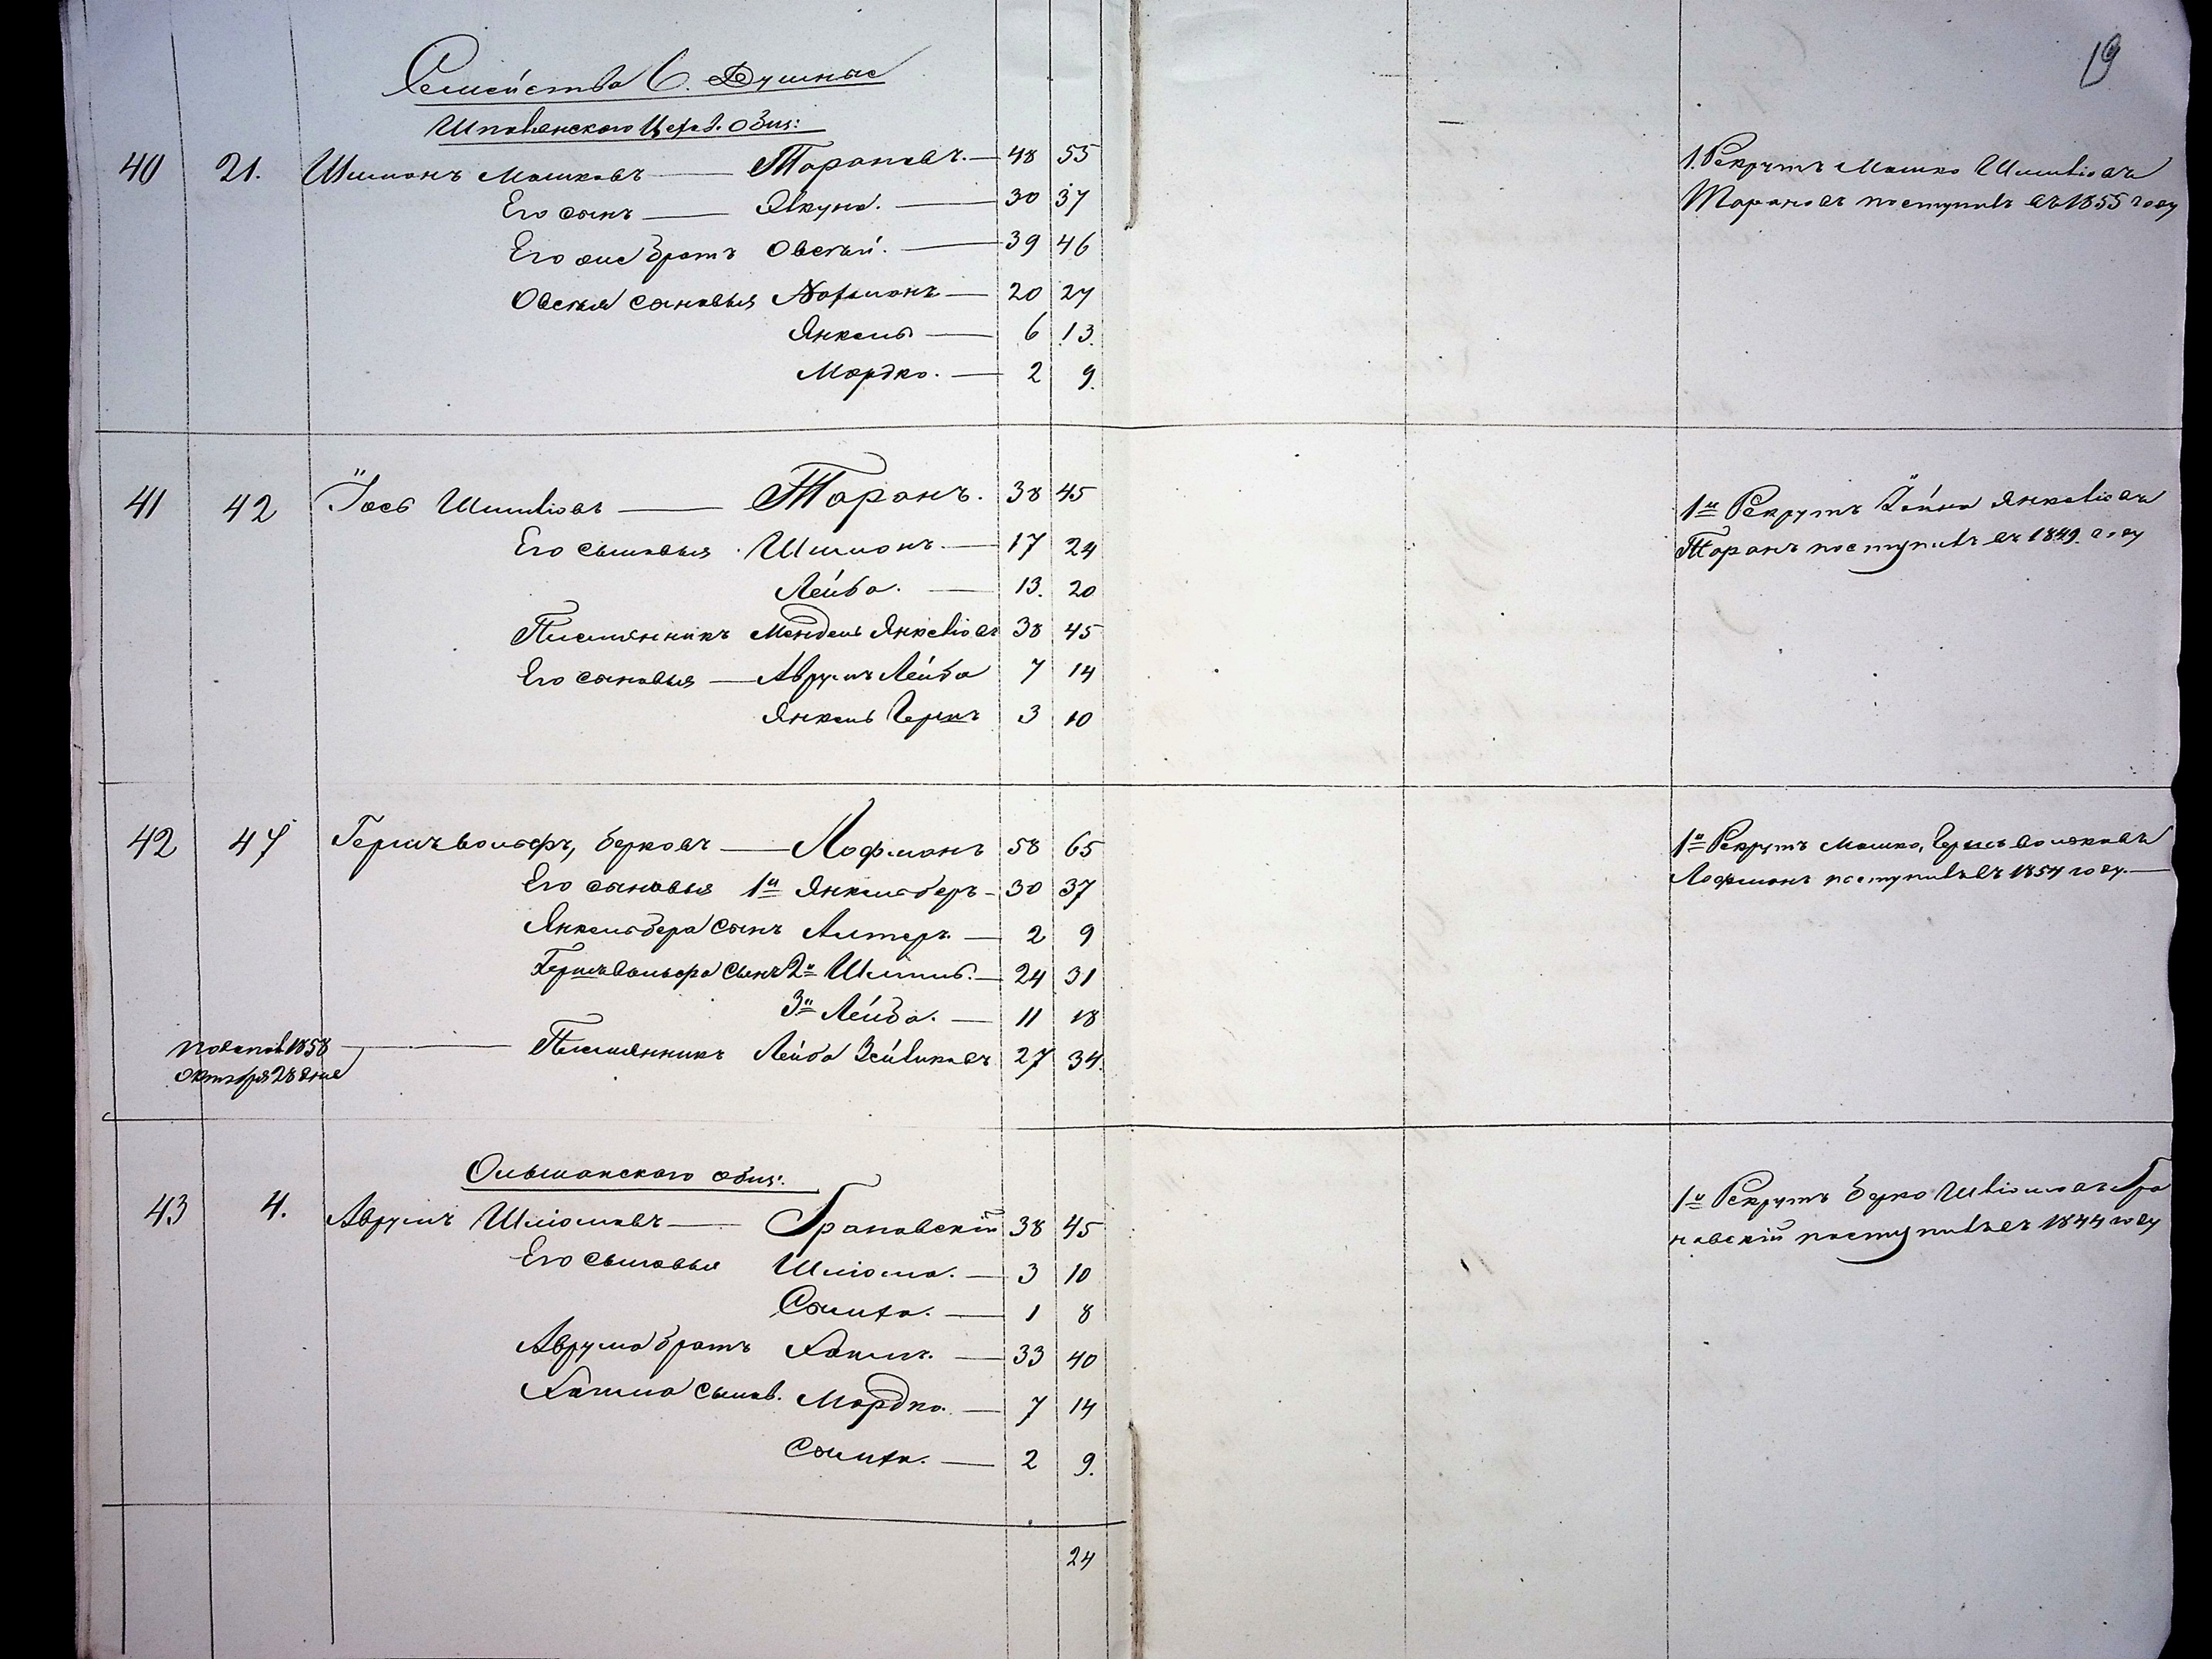 19
Семейства 6. Душные
Шполянскаго Церов. общ:
40 21. Шимонъ Мошковъ — Тарановъ. — 48 55
Его сынъ — Явкуна. — 30 37
Его же братъ Овсѣй. — 39 46
Овсѣя сыновья Нахманъ — 20 27
Янкель — 6 13.
Мордко. — 2 9.
1. Рекрутъ Мошко Шмулiовъ
Тарановъ поступилъ въ 1855 году
41 42 Iось Шмулiовъ — Таранъ. 38 45
Его сыновья Шимонъ. — 17 24
Лейба. — 13. 20
Племянникъ Мендель Янкелiовъ 38 45
Его сыновья — Аврумъ Лейба 7 14
Янкель Гершъ 3 10
1й Рекрутъ Янкелiовъ
Таранъ поступилъ въ 1849. году
42 47 Гершъ Вольфъ, Берковъ — Лофманъ 58 65
Его сыновья 1й Янкельберъ — 30 37
Янкельбера сынъ Алтеръ. — 2 9
Гершъ Вольфа сынъ 2й Шмуль. — 24 31
3й Лейба. — 11 18
Племянникъ Лейба Зейликовъ 27 34.
1858
Октября 28 дня
1й Рекрутъ Мошко, Гершъ Вольковъ
Лофманъ поступилъ въ 1854 году. —
Ольшанскаго общ:
43 4. Аврумъ Шлiомовъ — Грановскiй 38 45
Его сыновья Шлiома. — 3 10
Сымха. — 1 8
Аврума братъ Хаимъ. — 33 40
Хаима сынов. Мордко. — 7 14
Сымха. — 2 9.
1й Рекрутъ Берко Шлiомовъ Гра
новскiй поступилъ въ 1844 году
24